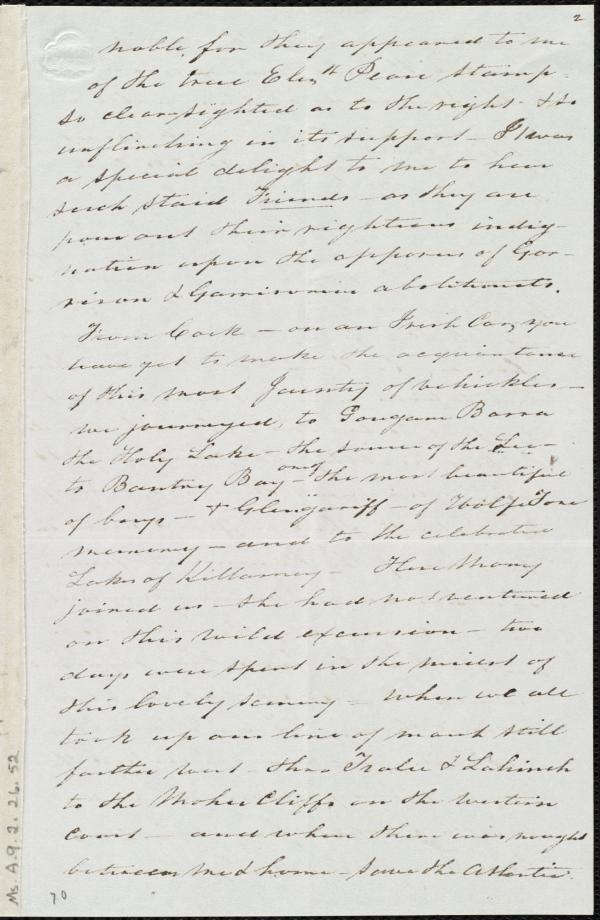 2
noble, for they appeared to me
of the true Elizth Pease stamp.
so clearsighted as to the right - & so
unflinching in its support - It was
a special delight to me to hear
such staid Friends - as they are
pour out their righteous indig-
nation upon the opposers of Gar-
rison & Garrisonian abolitionists.
From Cork - on an Irish Car, you
have yet to make the acquaintance
of this most Jaunty of vehickles -
we journeyed, to Gougane Barra
the Holy Lake - the source of the Lee -
to Bantry Bay - one of the most beautiful
of bays - & Glengariff - of Wolfe Tone
memory - and to the celebrated
Lakes of Killarney - Here
joined us - she had not ventured
on this wild excursion - two
days were spent in the midst of
this lovely scenery - when we all
took up our line of march still
farther west - thro Tralee & Lahinch
to the Moher Cliffs on the western
coast - and where there was nought
between me & home - save the Atlantic.
Ms. A.9.2.26.52
70